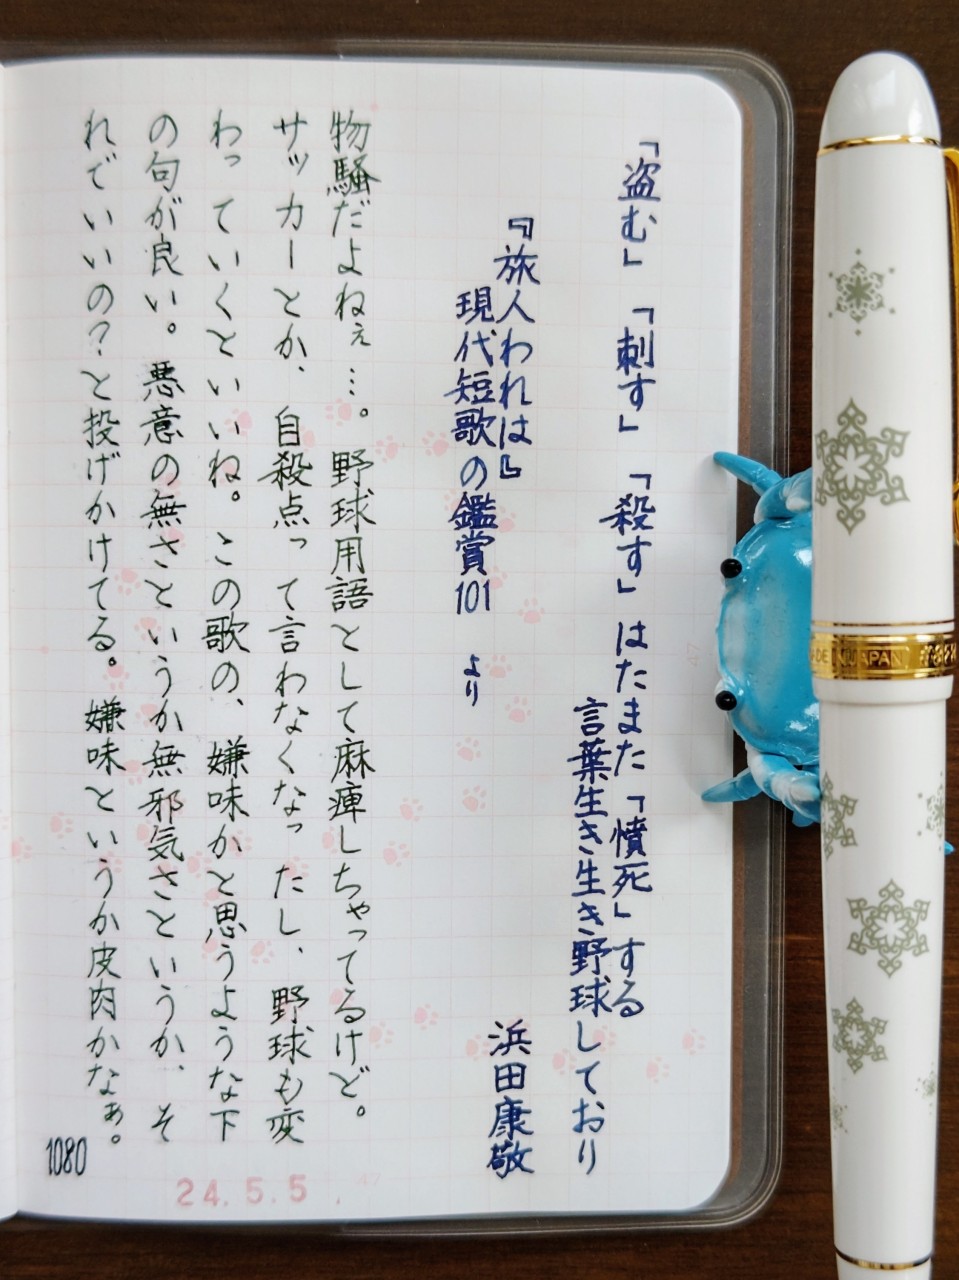 「盗む」「刺す」「殺す」はたまた「憤死」する
言葉生き生き野球しており
浜田康敬
『旅人われは』
現代短歌の鑑賞101 より
物騒だよねぇ…。野球用語として麻痺しちゃってるけど。
サッカーとか、自殺点って言わなくなったし、野球も変
わっていくといいね。この歌の、嫌味かと思うような下
の句が良い。悪意の無さというか無邪気さというか、そ
れでいいの?と投げかけてる。嫌味というか皮肉かなぁ。
1080
24.5.5.
47
JAPAN